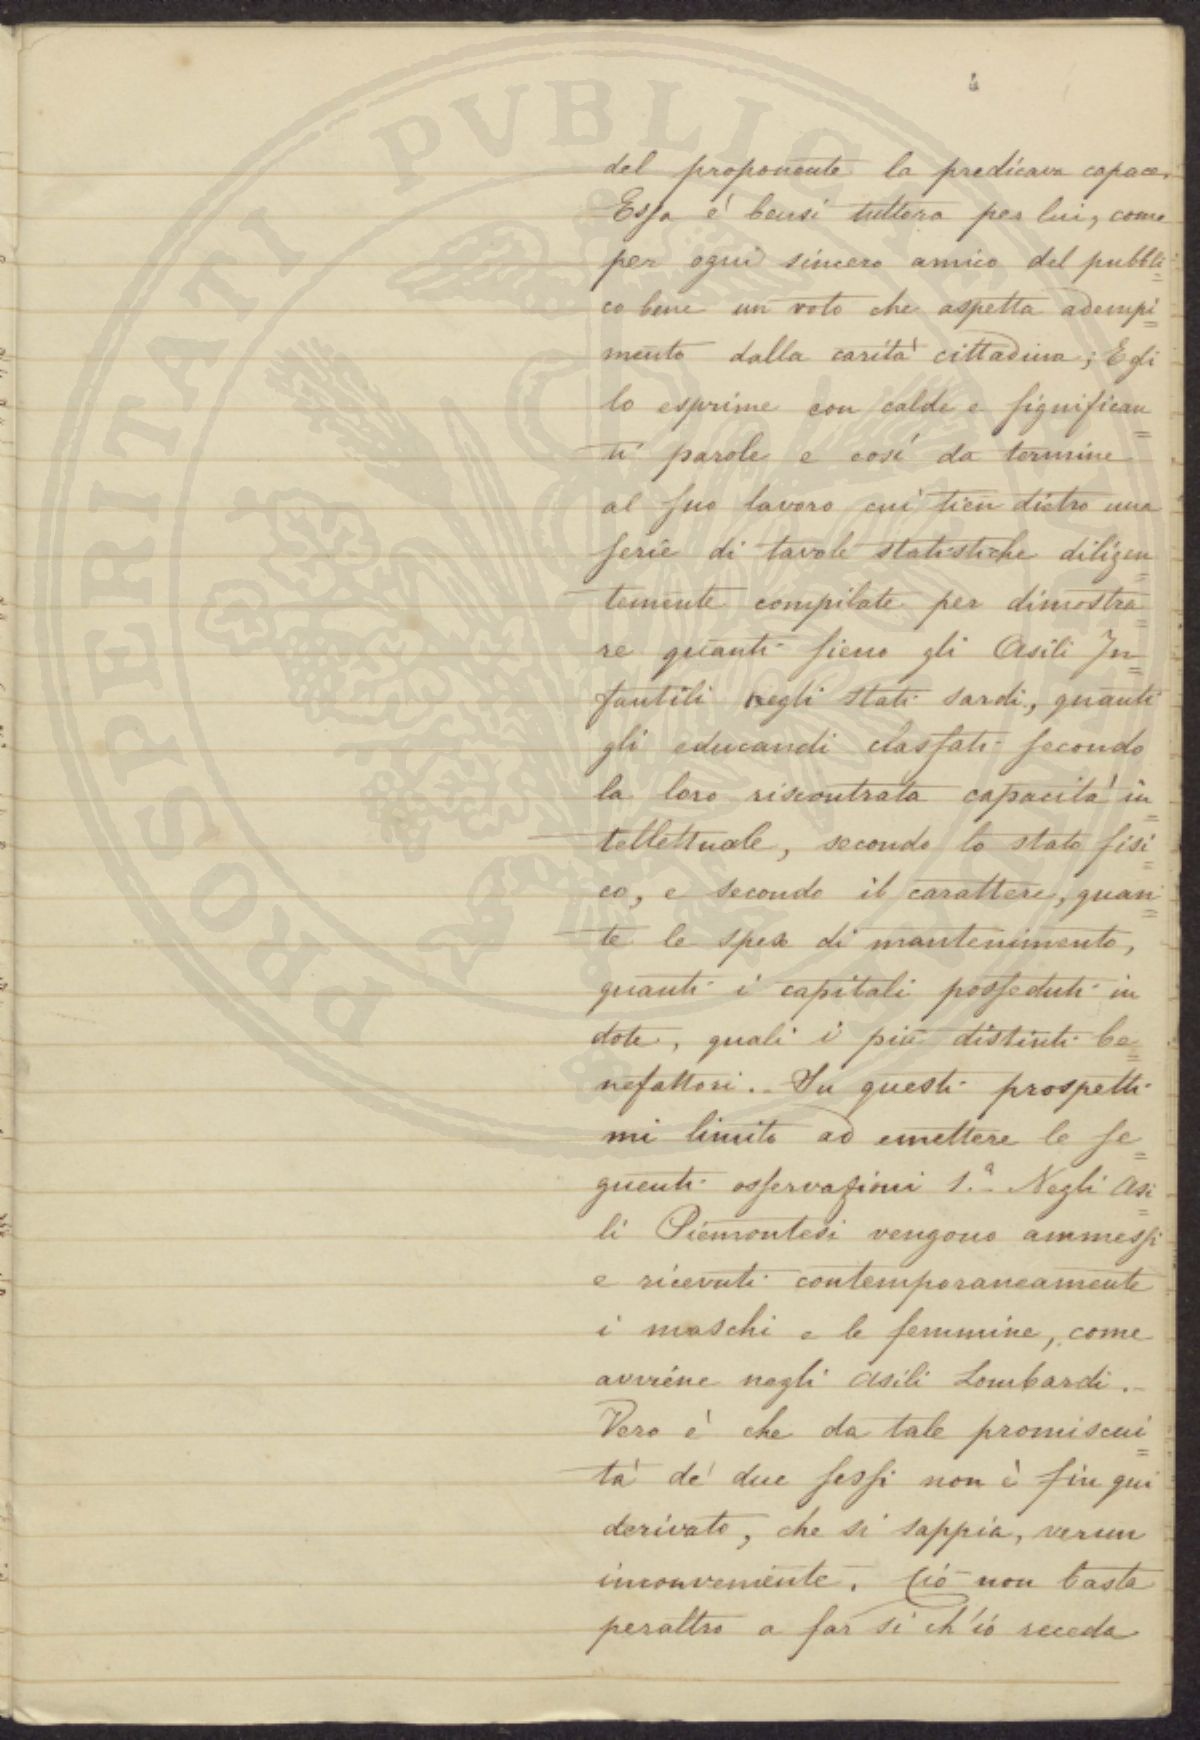 4
del proponente la predicava capace.
Essa è bensì tuttora per lui, come
per ogni sincero amico del pubbli=
co bene un voto che aspetta adempi=
mento dalla carità cittadina; Egli
lo esprime con calde e significan=
ti parole e così da termine
al suo lavoro cui tien dietro una
serie di tavole statistiche diligen=
temente compilate per dimostra=
re quanti sieno gli Asili In=
fantili negli stati sardi, quanti
gli educandi classati secondo
la loro riscontrata capacità in=
tellettuale, secondo lo stato fisi=
co, e secondo il carattere, quan=
te le spese di mantenimento,
quanti i capitali posseduti in
dote, quali i più distinti be=
nefattori.. Su questi prospetti
mi limito ad emettere le se=
guenti osservazioni 1.ª Negli Asi=
li Piemontesi vengono ammessi
e ricevuti contemporaneamente
i maschi e le femmine, come
avviene negli Asili Lombardi.-
Vero è che da tale promiscui=
tà de' due sessi non è fin qui
derivato, che si sappia, verun
inconveniente. Ciò non basta
peraltro a far sì ch'io receda
PROSPERITATI PVBLICAE